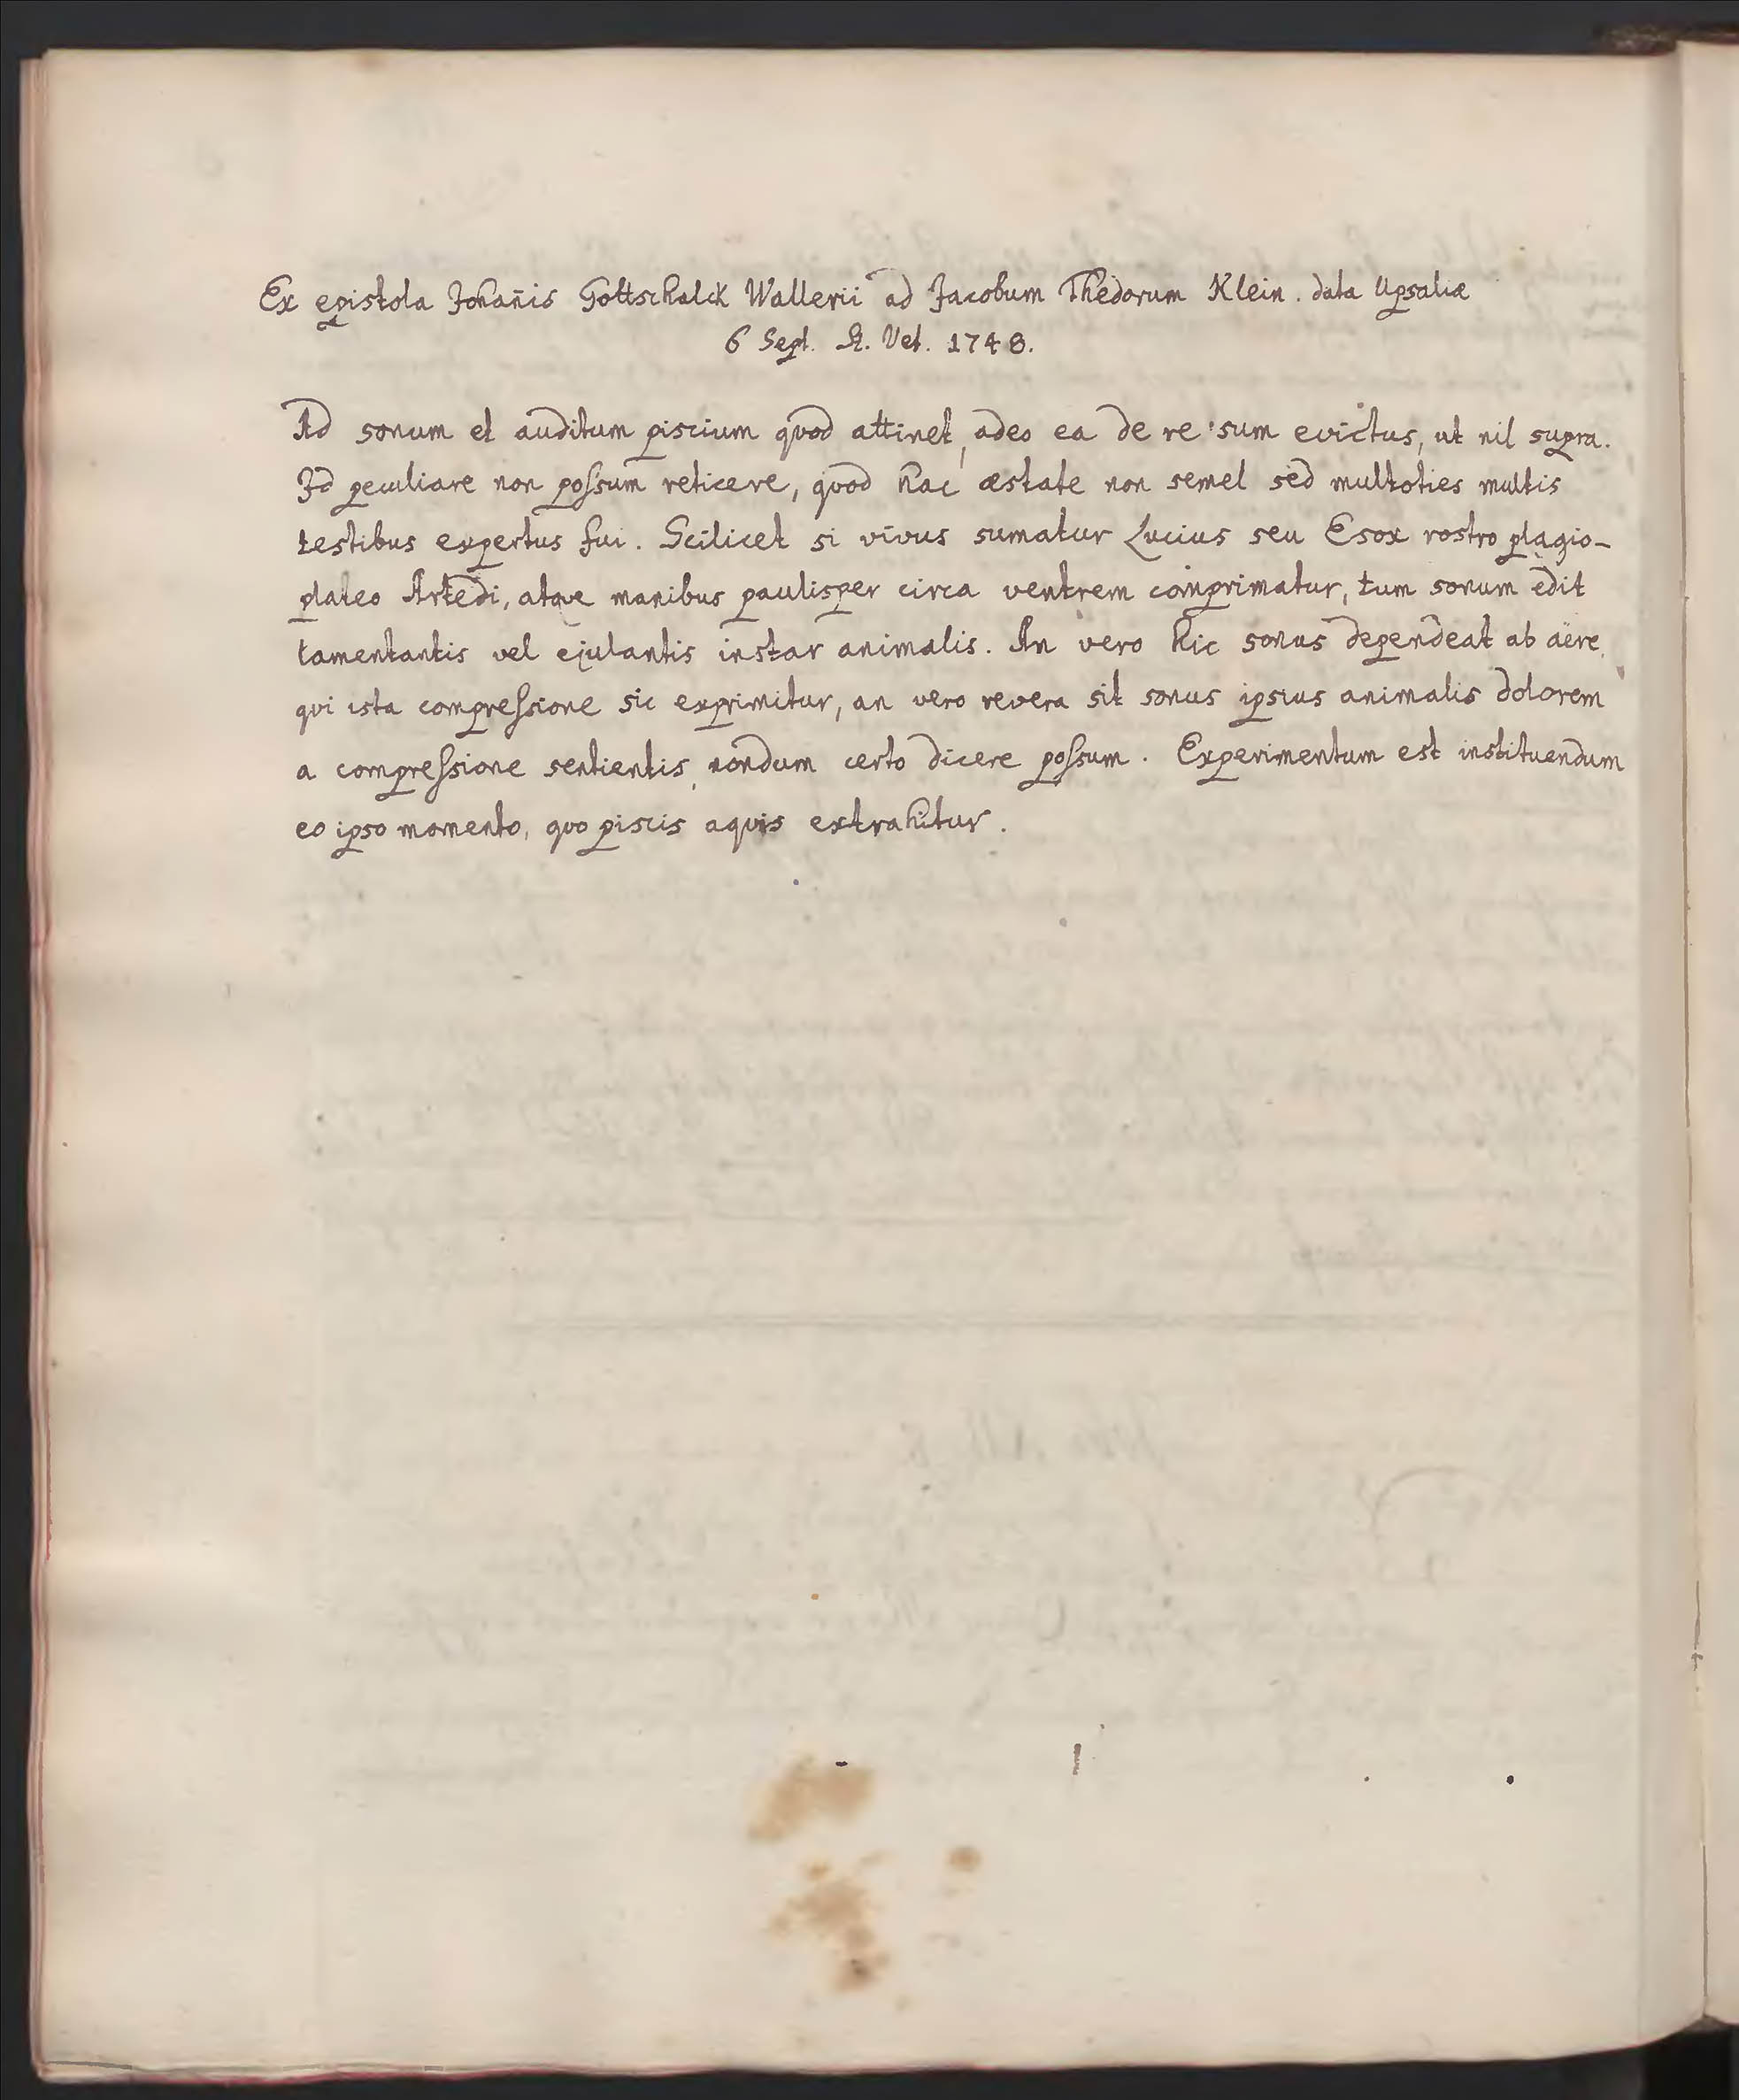 Ex epistola Johan̄is Gottschalck Wallerii ad Jacobum Thedorum Klein. data Upsaliæ
6 Sept. St. Vet. 1748.
Ad sonum et auditum piscium quod attinet, adeo ea de re sum evictus, ut nil supra.
Id peculiare non poſsum reticere, quod hac æstate non semel sed multoties multis
testibus expertus fui. Scilicet si vivus sumatur Lucius seu Esox rostro plagio-
plateo Artedi, atque manibus paulisper circa ventrem comprimatur, tum sonum edit
lamentantis vel ejulantis instar animalis. An vero hic sonus dependeat ab aëre,
qui ista compreſsione sic exprimitur, an vero revera sit sonus ipsius animalis dolorem
a compreſsione sentientis, nondum certo dicere poſsum. Experimentum est instituendum
eo ipso momento, quo piscis aquis extrahitur.